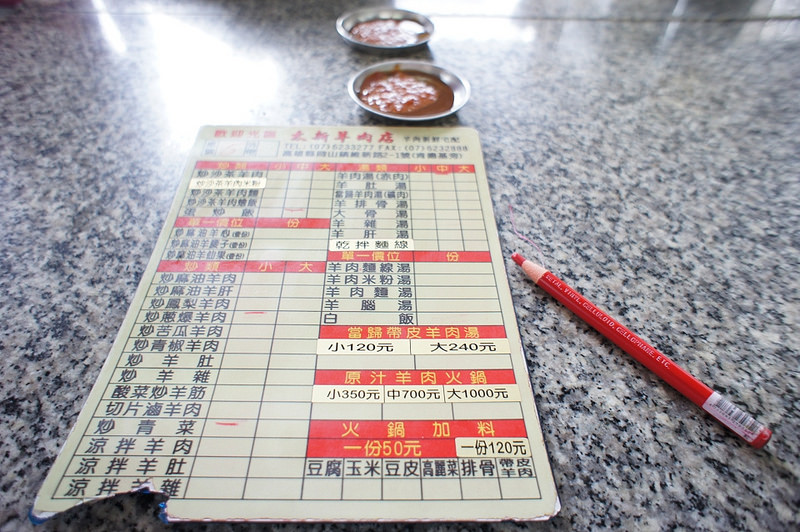 歡迎光臨 木新羊肉店
TEL:(07)6233277 FAX:(07)6232888
炒類 小 中 大
炒沙茶羊肉
炒沙茶羊肉米粉
炒沙茶羊肉麵
單一價位 份
炒麻油羊心(壹份)
炒類 小 大
炒麻油羊肉
炒麻油羊肝
炒鳳梨羊肉
炒蔥爆羊肉
炒苦瓜羊肉
炒青椒羊肉
炒羊肚
炒羊雜
酸菜炒羊筋
切片滷羊肉
炒青菜
涼拌羊肉
涼拌羊肚
涼拌羊雜
湯類 小 中 大
羊肉湯(赤肉)
羊肚湯
羊排骨湯
大骨湯
羊雜湯
羊肝湯
乾拌麵線
單一價位 份
羊肉麵線湯
羊肉米粉湯
羊肉麵湯
羊腦湯
白飯
當歸帶皮羊肉湯
小120元 大240元
原汁羊肉火鍋
小350元 中700元 大1000元
火鍋加料
一份50元 一份120元
豆腐 玉米 豆皮 高麗菜 排骨 帶皮羊肉
METAL, VINYL, CELLULOID, CELLOPHANE, ETC.